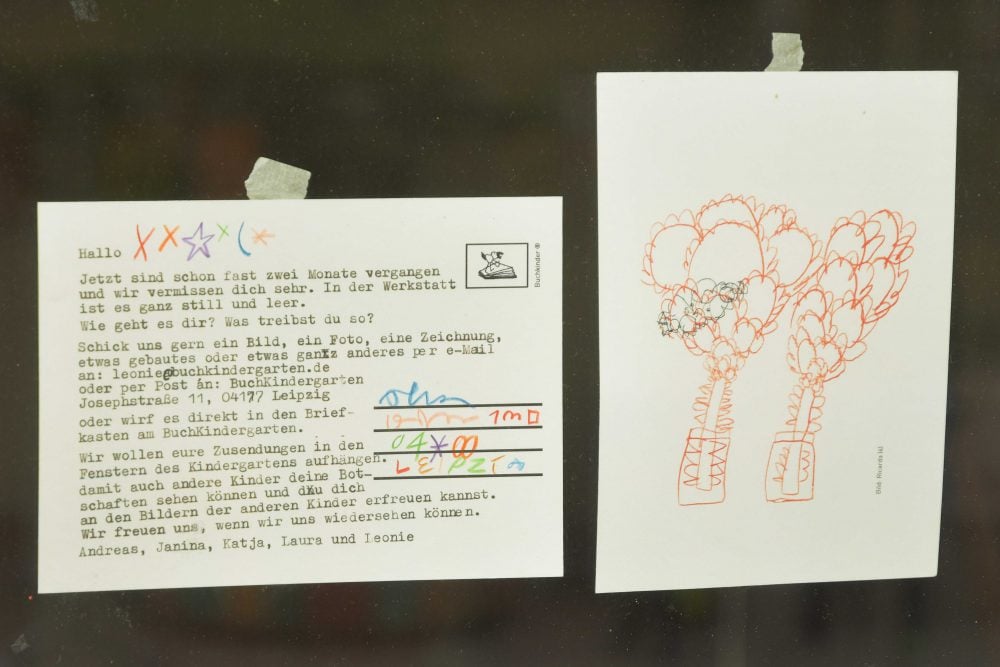 Hallo
Jetzt sind schon fast zwei Monate vergangen
und wir vermissen dich sehr. In der Werkstatt
ist es ganz still und leer.
Wie geht es dir? Was treibst du so?
Schick uns gern ein Bild, ein Foto, eine Zeichnung,
etwas gebautes oder etwas ganz anderes per e-Mail
an: leonie@buchkindergarten.de
oder per Post an: BuchKindergarten
Josephstraße 11, 04177 Leipzig
oder wirf es direkt in den Brief-
kasten am BuchKindergarten.
Wir wollen eure Zusendungen in den
Fenstern des Kindergartens aufhängen.
damit auch andere Kinder deine Bot-
schaften sehen können und du dich
an den Bildern der anderen Kinder erfreuen kannst.
Wir freuen uns, wenn wir uns wiedersehen können.
Andreas, Janina, Katja, Laura und Leonie
Buchkinder ®
Bild: Ricarda